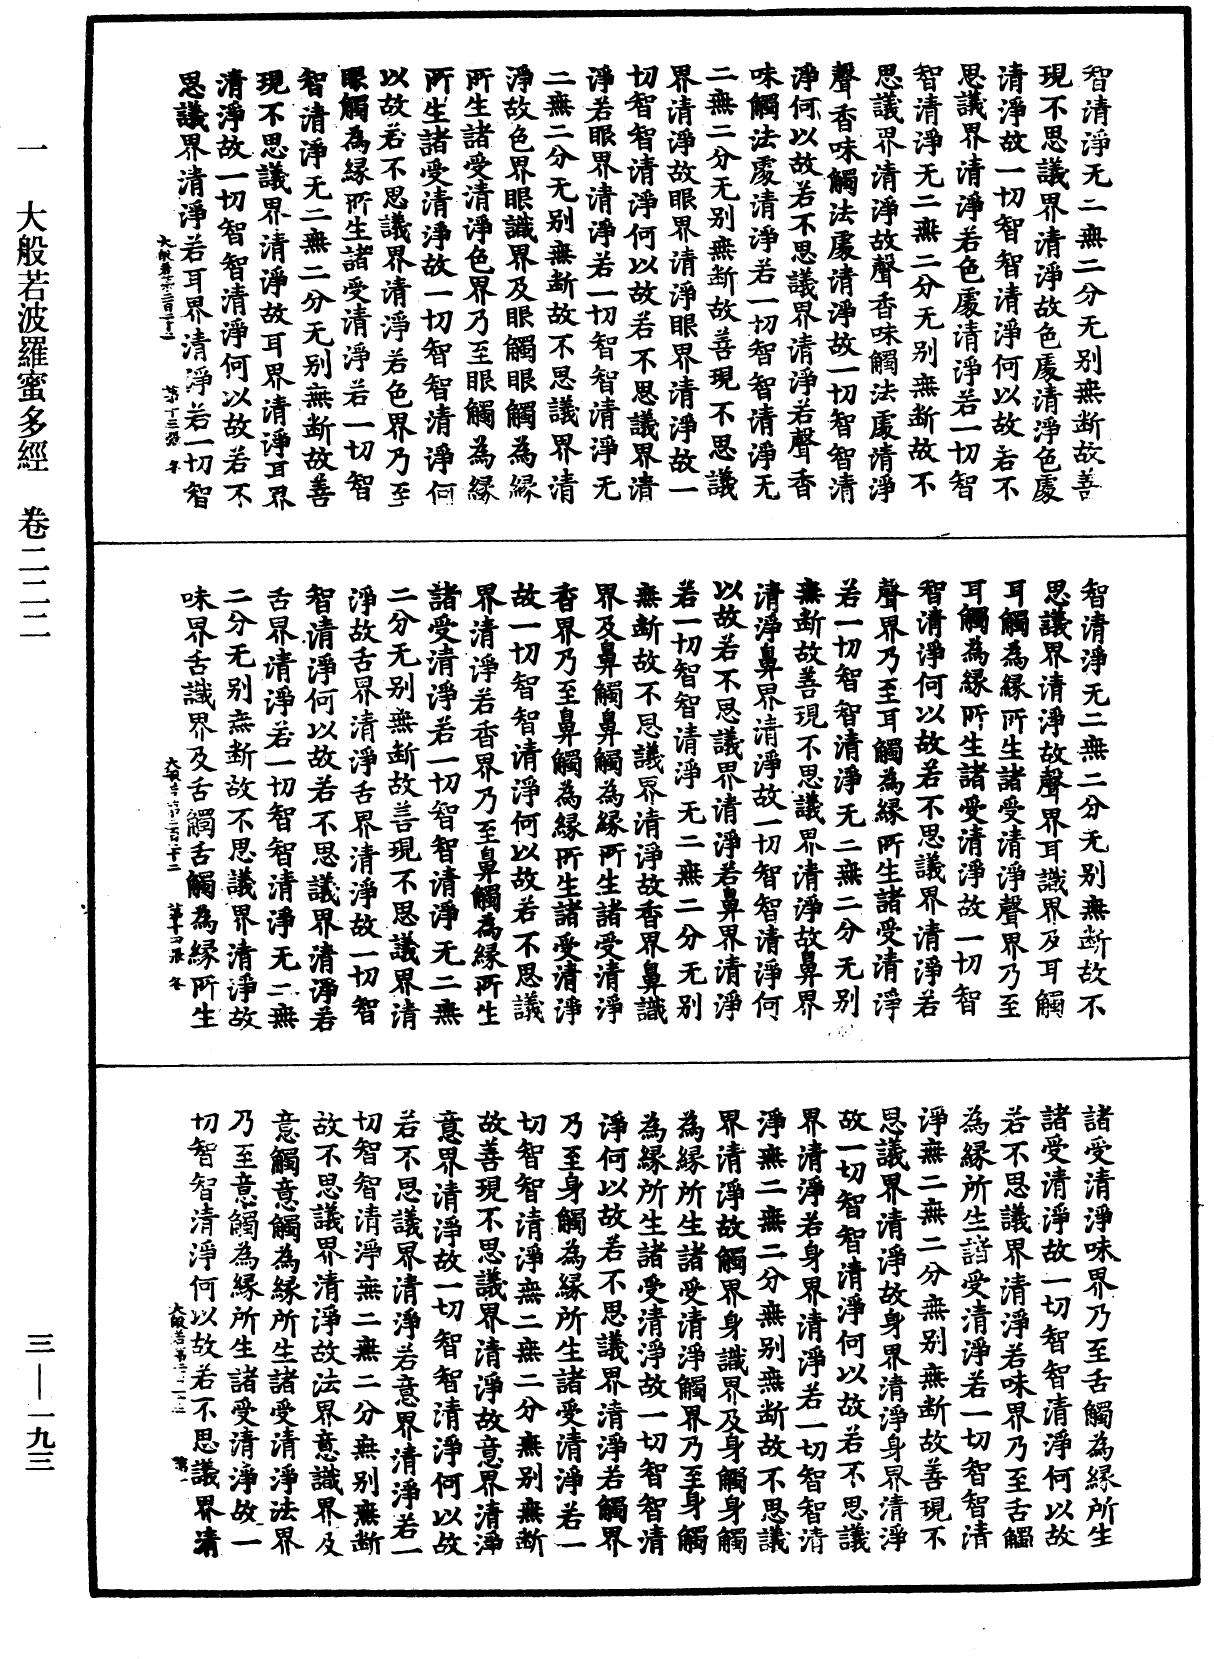 智清淨无二無二分无別無断故善
現不思議界清淨故色處清淨色處
清淨故一切智智清淨何以故若不
思議界清淨若色處清淨若一切智
智清淨无二無二分无別無断故不
思議界清淨故聲香味觸法處清淨
聲香味觸法處清淨故一切智智清
淨何以故若不思議界清淨若聲香
味觸法處清淨若一切智智清淨无
二無二分无別無断故善現不思議
界清淨故眼界清淨眼界清淨故一
切智智清淨何以故若不思議界清
淨若眼界清淨若一切智智清淨无
二無二分无別無断故不思議界清
淨故色界眼識界及眼觸眼觸為縁
所生諸受清淨色界乃至眼觸為縁
所生諸受清淨故一切智智清淨何
以故若不思議界清淨若色界乃至
眼觸為縁所生諸受清淨若一切智
智清淨无二無二分无別無断故善
現不思議界清淨故耳界清淨耳界
清淨故一切智智清淨何以故若不
思議界清淨若耳界清淨若一切智
大般若第二百二十二 第十三張 冬
智清淨无二無二分无別無断故不
思議界清淨故聲界耳識界及耳觸
耳觸為縁所生諸受清淨聲界乃至
耳觸為縁所生諸受清淨故一切智
智清淨何以故若不思議界清淨若
聲界乃至耳觸為縁所生諸受清淨
若一切智智清淨无二無二分无別
無断故善現不思議界清淨故鼻界
清淨鼻界清淨故一切智智清淨何
以故若不思議界清淨若鼻界清淨
若一切智智清淨无二無二分无別
無断故不思議界清淨故香界鼻識
界及鼻觸鼻觸為縁所生諸受清淨
香界乃至鼻觸為縁所生諸受清淨
故一切智智清淨何以故若不思議
界清淨若香界乃至鼻觸為縁所生
諸受清淨若一切智智清淨无二無
二分无別無断故善現不思議界清
淨故舌界清淨舌界清淨故一切智
智清淨何以故若不思議界清淨若
舌界清淨若一切智智清淨无二無
二分无別無断故不思議界清淨故
味界舌識界及舌觸舌觸為縁所生
大般若第二百二十二 第十四張 冬
諸受清淨味界乃至舌觸為縁所生
諸受清淨故一切智智清淨何以故
若不思議界清淨若味界乃至舌觸
為縁所生諸受清淨若一切智智清
淨無二無二分無別無断故善現不
思議界清淨故身界清淨身界清淨
故一切智智清淨何以故若不思議
界清淨若身界清淨若一切智智清
淨無二無二分無別無断故不思議
界清淨故觸界身識界及身觸身觸
為縁所生諸受清淨觸界乃至身觸
為縁所生諸受清淨故一切智智清
淨何以故若不思議界清淨若觸界
乃至身觸為縁所生諸受清淨若一
切智智清淨無二無二分無別無断
故善現不思議界清淨故意界清淨
意界清淨故一切智智清淨何以故
若不思議界清淨若意界清淨若一
切智智清淨無二無二分無別無断
故不思議界清淨故法界意識界及
意觸意觸為縁所生諸受清淨法界
乃至意觸為縁所生諸受清淨故一
切智智清淨何以故若不思議界清
一 大般若波羅蜜多經 卷二二二
三—一九三